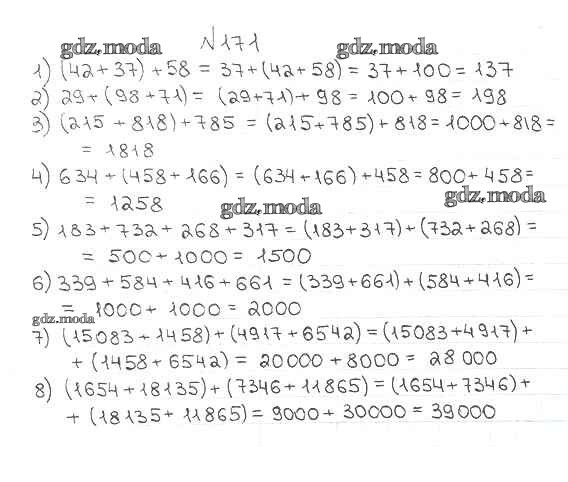 №171
gdz.moda gdz.moda
1) (42+37)+58 = 37+(42+58) = 37+100 = 137
2) 29+(98+71) = (29+71)+98 = 100+98 = 198
3) (215+818)+785 = (215+785)+818 = 1000+818 =
= 1818
4) 634+(458+166) = (634+166)+458 = 800+458 =
= 1258
gdz.moda gdz.moda
5) 183+732+268+317 = (183+317)+(732+268) =
= 500+1000 = 1500
6) 339+584+416+661 = (339+661)+(584+416) =
= 1000+1000 = 2000
gdz.moda
7) (15083+1458)+(4917+6542) = (15083+4917)+
+(1458+6542) = 20000+8000 = 28 000
8) (1654+18135)+(7346+11865) = (1654+7346)+
+(18135+11865) = 9000+30000 = 39000